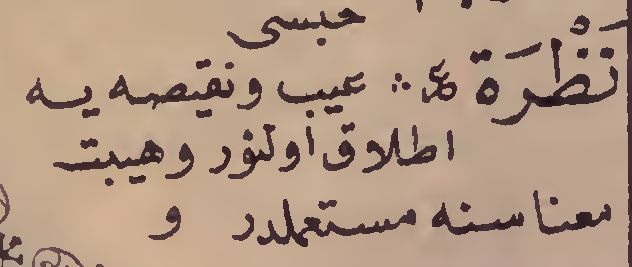 حبسى
نَظْرَة ع ∴ عيب و نقيصه يه
اطلاق اولنور و هيبت
معناسنه مستعملدر و